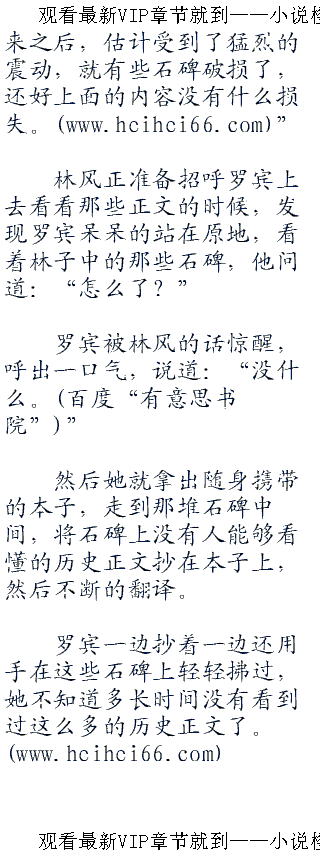 观看最新VIP章节就到——小说
来之后，估计受到了猛烈的
震动，就有些石碑破损了，
还好上面的内容没有什么损
失。(www.hcihci66.com)”
林风正准备招呼罗宾上
去看看那些正文的时候，发
现罗宾呆呆的站在原地，看
着林子中的那些石碑，他问
道：“怎么了？”
罗宾被林风的话惊醒，
呼出一口气，说道：“没什
么。(百度“有意思书
院”)”
然后她就拿出随身携带
的本子，走到那堆石碑中
间，将石碑上没有人能够看
懂的历史正文抄在本子上，
然后不断的翻译。
罗宾一边抄着一边还用
手在这些石碑上轻轻拂过，
她不知道多长时间没有看到
过这么多的历史正文了。
(www.hcihci66.com)
观看最新VIP章节就到——小说